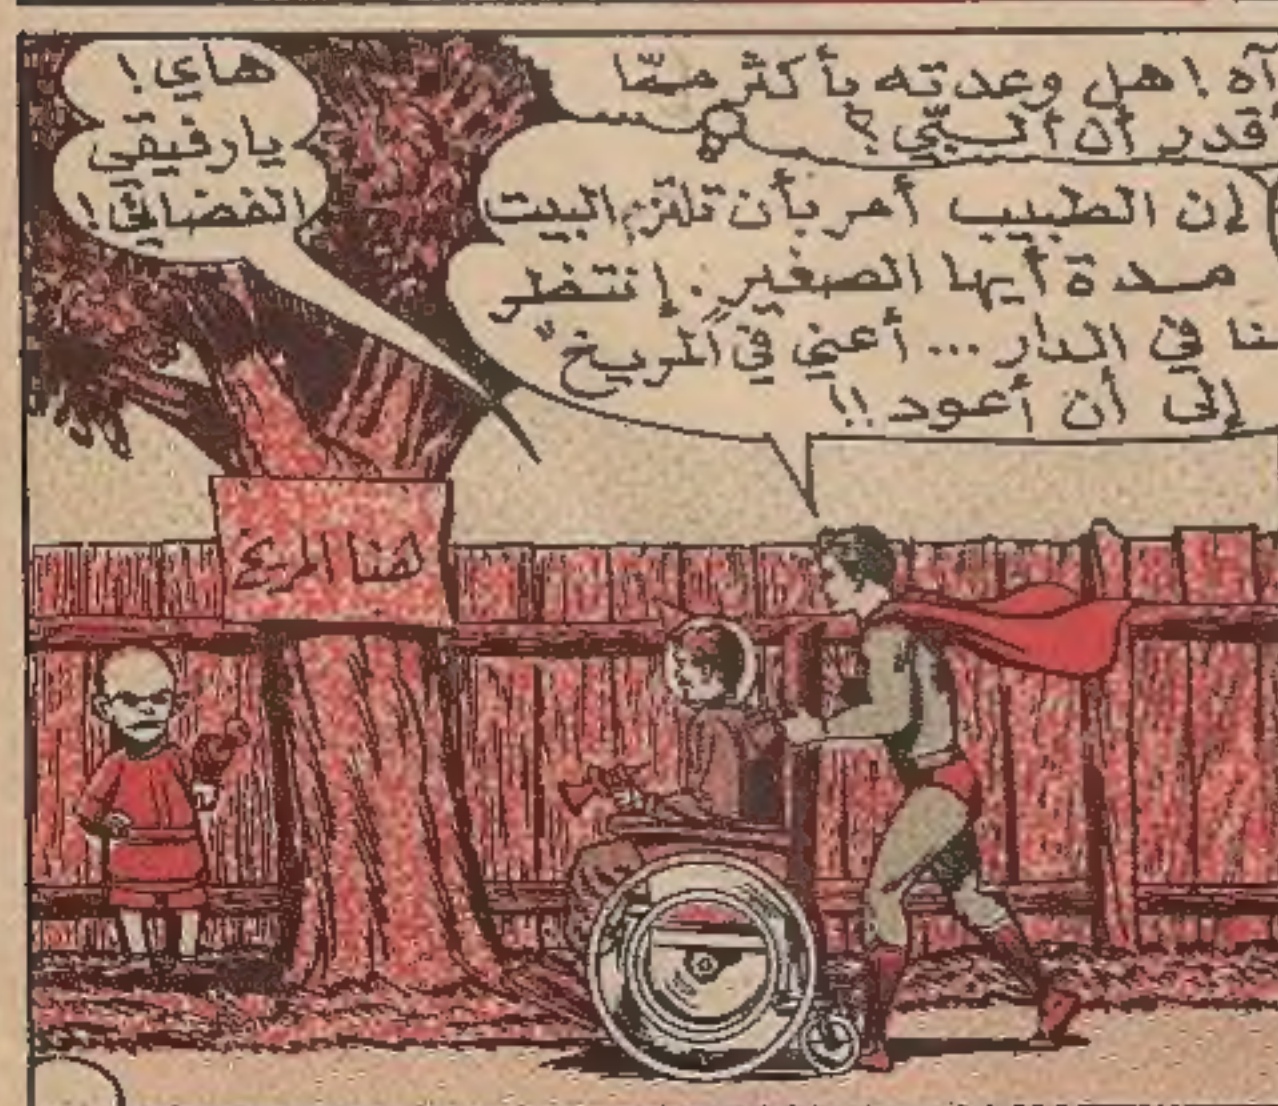 آه ! هل وعدته بأكثر ممّا
أقدر أن ألبّي ؟
إن الطبيب أمر بأن تلتزم البيت
مدة أيها الصغير . إنتظر
هنا في الدار ... أعني في المريخ "
إلى أن أعود !!
هاي !
يا رفيقي
الفضائي !
هنا المريخ